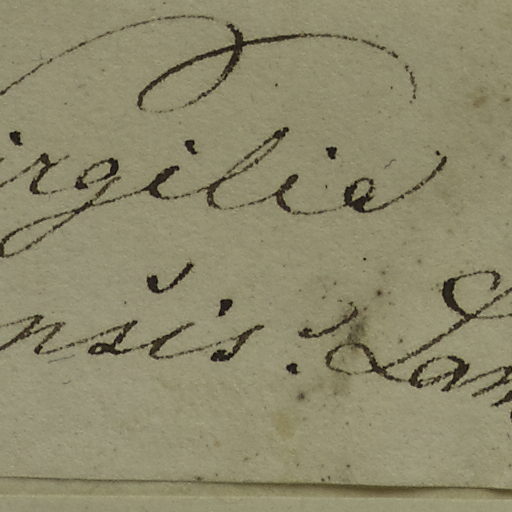 irgilia
ensis. Lam